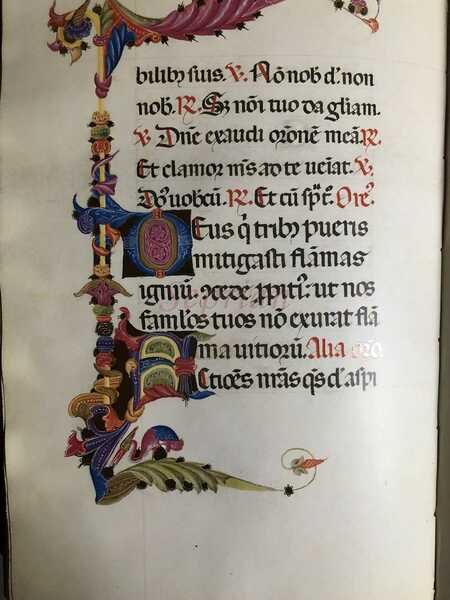 biliby suis. V. Nō nob d' non
nob. R. Sz nōi tuo da gliam.
V. Dn̄e exaudi orōnē meā. R.
Et clamor m̄s ad te ueīat. V.
Dn̄s uobcū. R. Et cū sp̄t'. Orē'.
Deus q̄ triby pueris
mitigasti flāmas
igniū: ꝯcede ꝓpiti': ut nos
famlos tuos nō exurat flā
ma uitiorū. Alia orō
Actiōēs nrās qs d' aspi